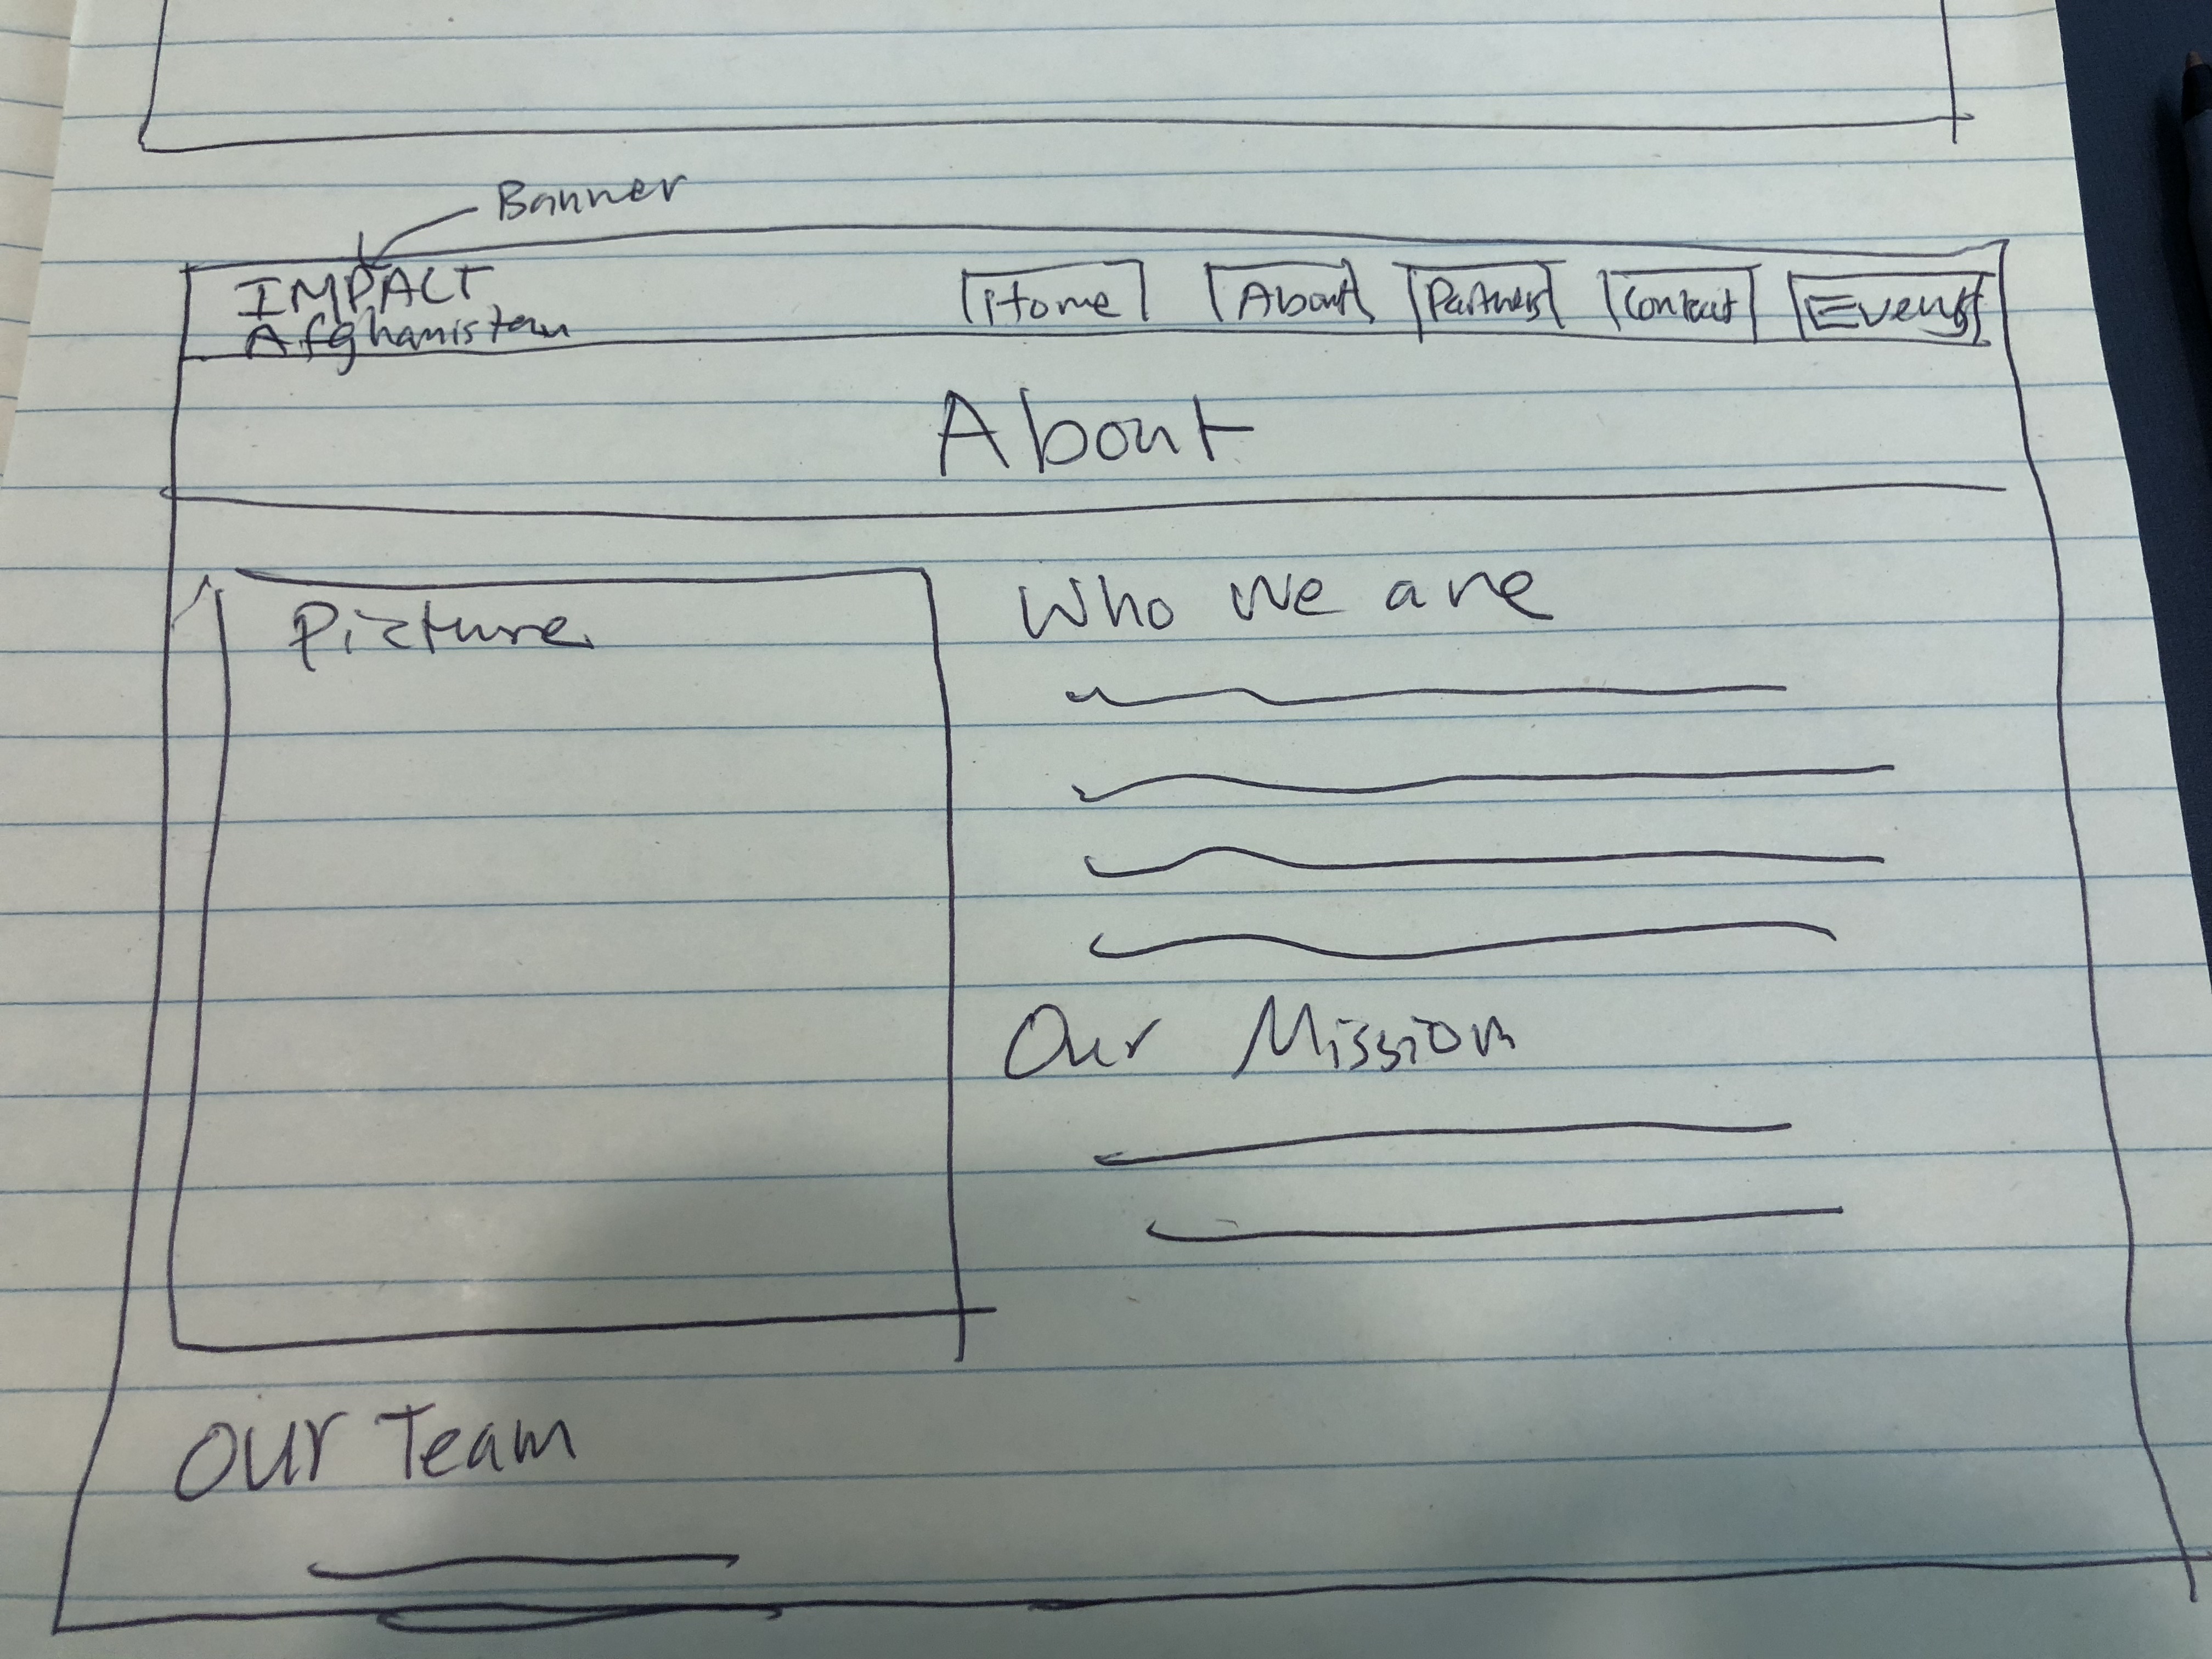 Banner
IMPACT
Afghanistan
Home About Partners Contact Events
About
Picture
Who we are
Our Mission
Our Team